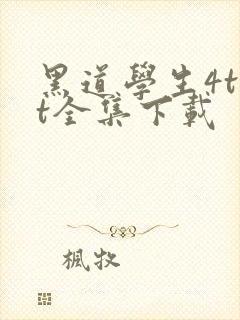 黑道學生4t
t全集下載
楓牧